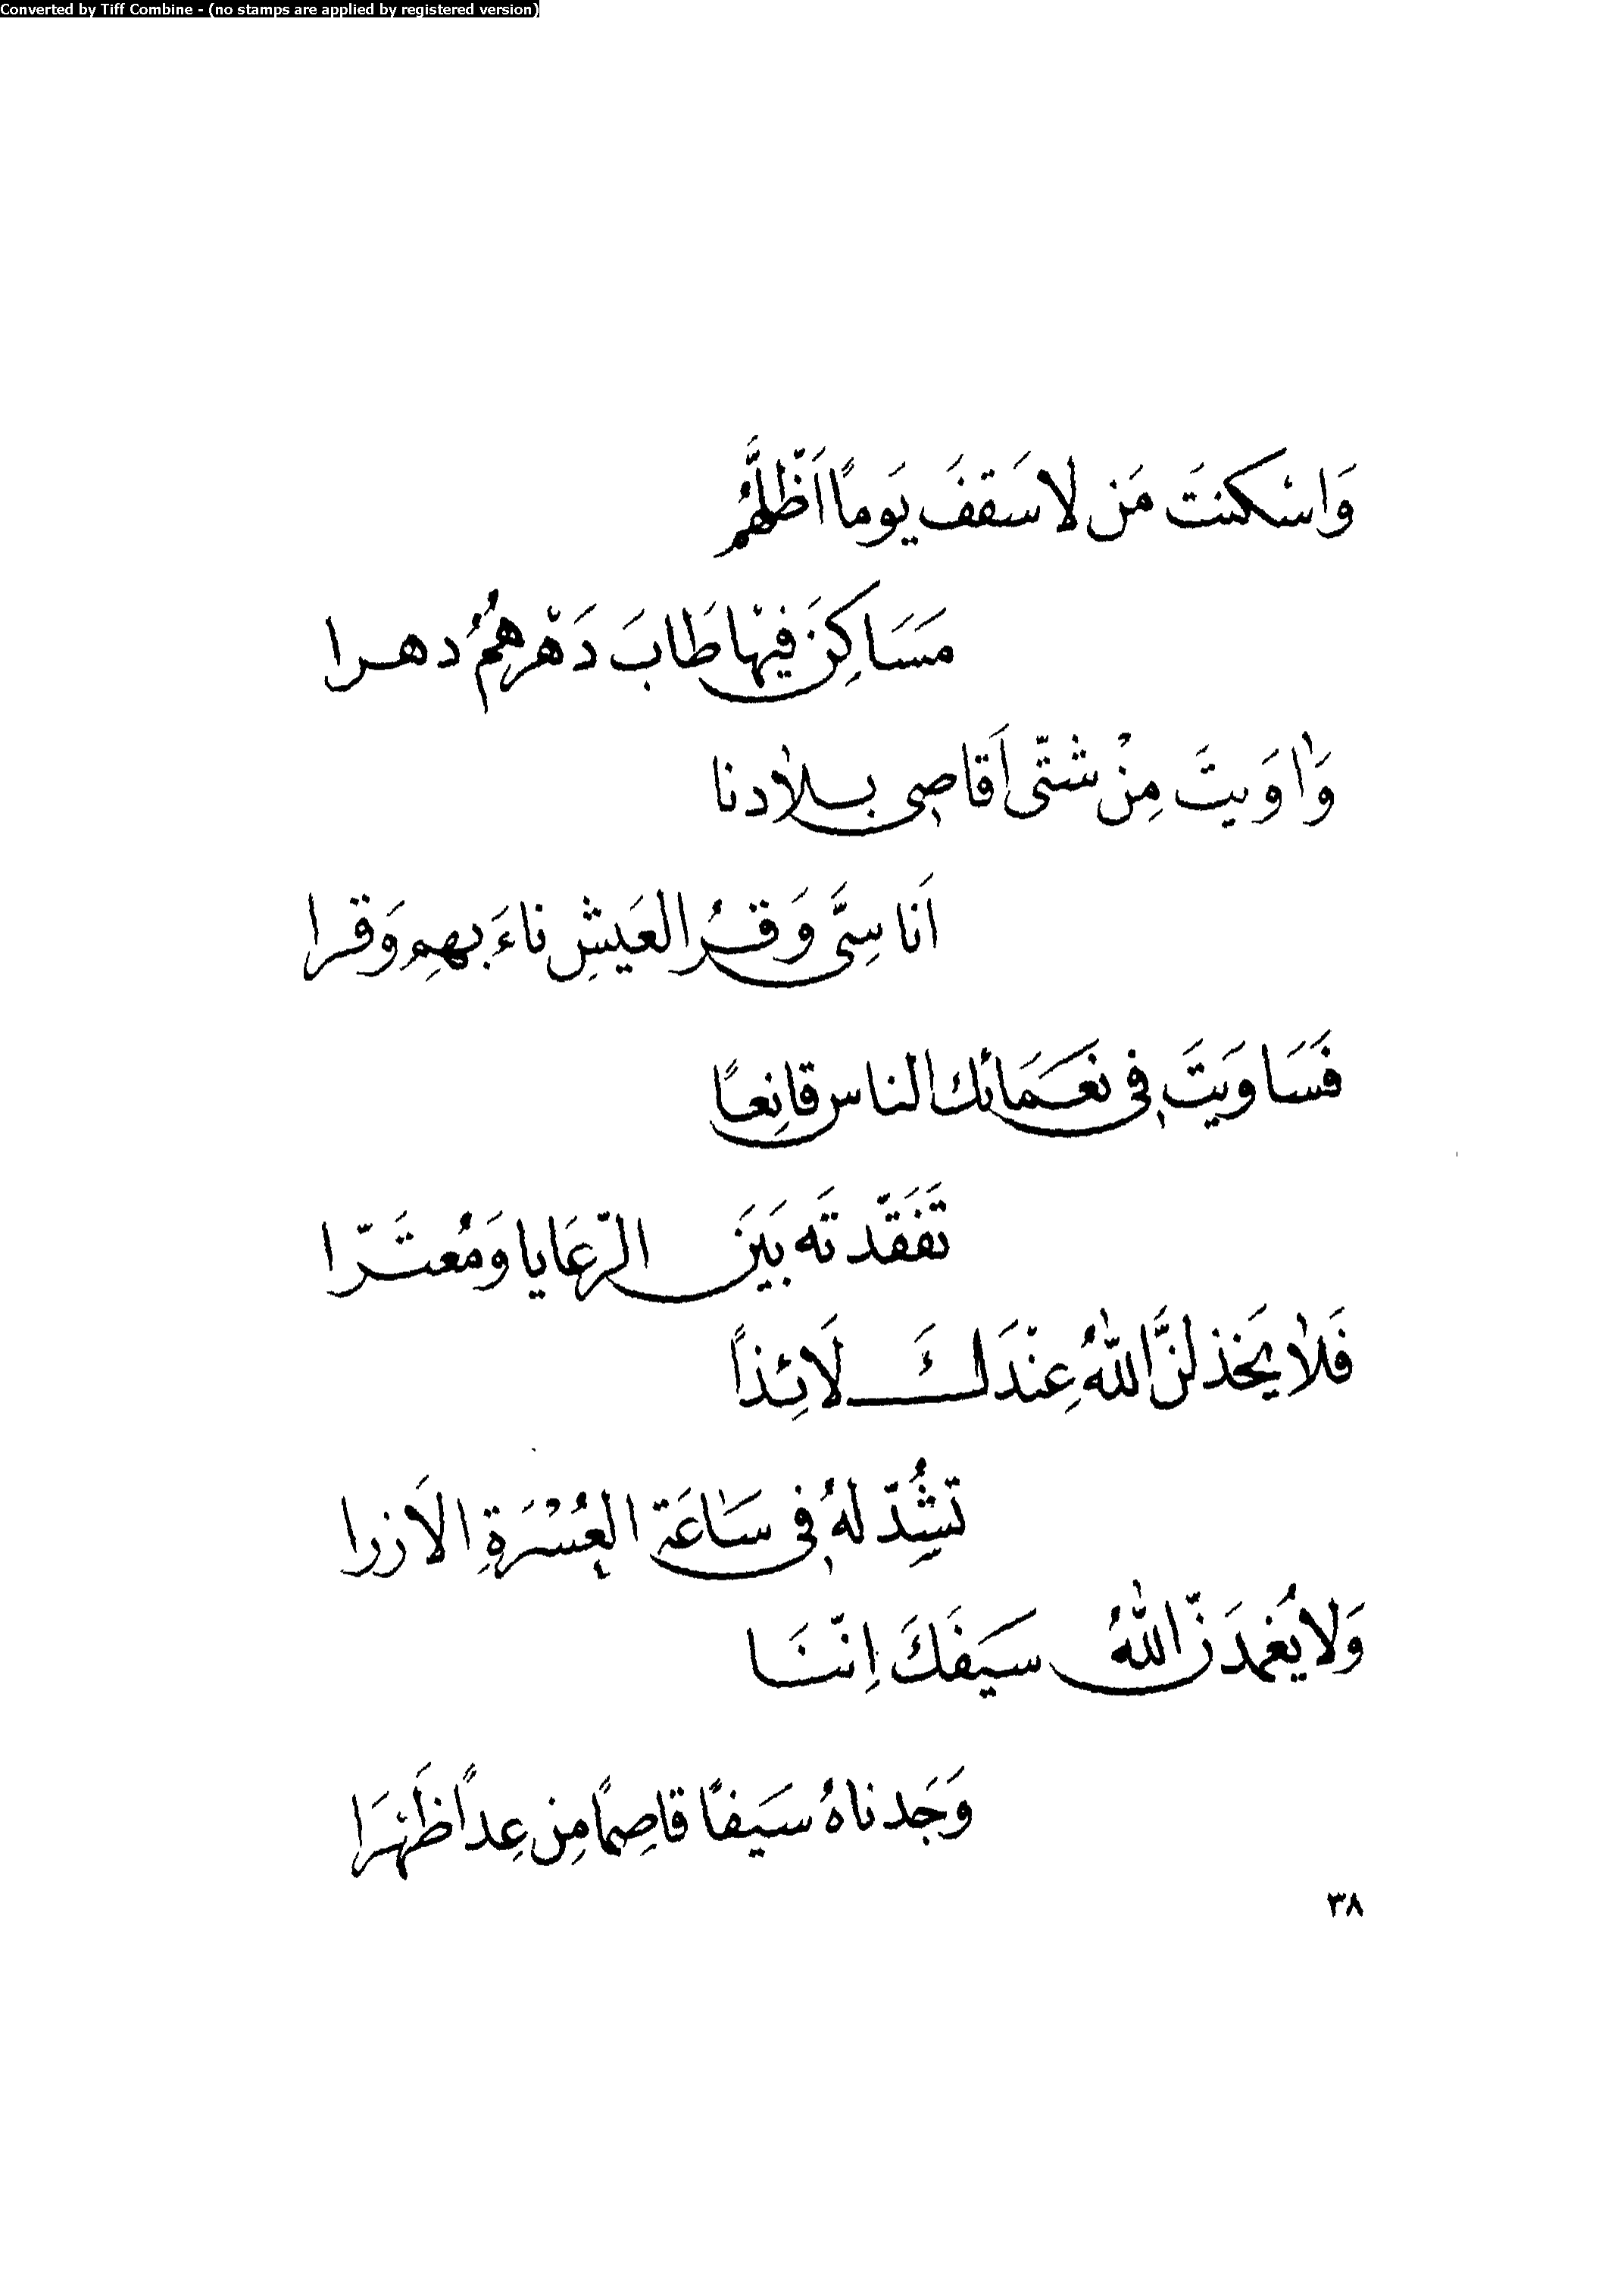 Converted by Tiff Combine - (no stamps are applied by registered version)
وَاسْكنتَ مَن لا سَقفَ يَوماً اَظَّلَّهُم
مَسَاكِنَ فيْها طَابَ دَهْرهِمُ دهرا
وَاٰوَيتَ مِنْ شتّى اَقاصِى بلادنا
اَناسِىَّ وَقرُ العَيشِ ناءَ بهِم وَقرا
فَسَاوَيتَ فِى نعَمَائك الناس قانِعاً
تَفَقّدتَه بَينَ الرّعَايا وَمُعتَرّا
فَلا يَخذلنَّ اللهُ عِنْدَكَ لَائِذاً
تشُدّ لهُ فِى سَاعَة العُسْرَةِ الاَزرا
وَلا يُغمدَنّ اللهُ سَيفَكَ اِنّنَا
وَجَدناهُ سَيفاً قاصِماً مِن عِداً ظَهْرَا
٣٨